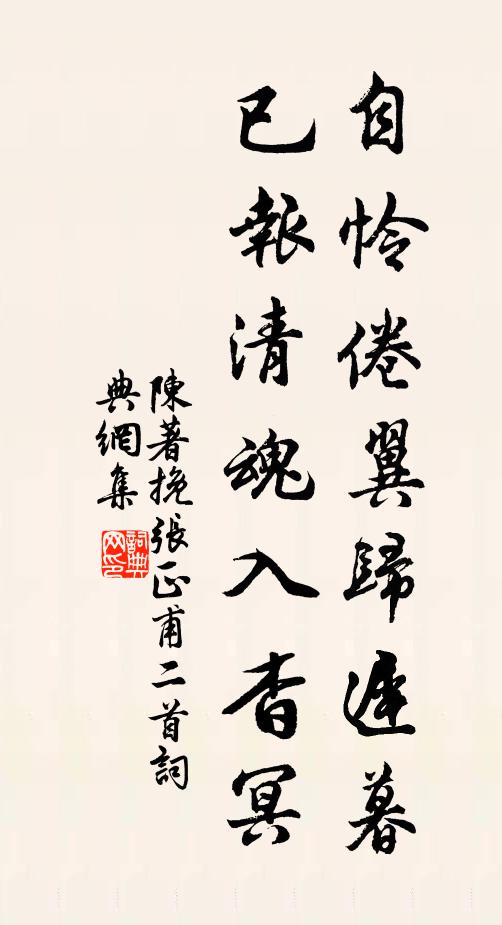 自怜倦翼歸遲暮
已報清魂入杳冥
陳著挽張正甫二首詞
典網集
詞典
网印